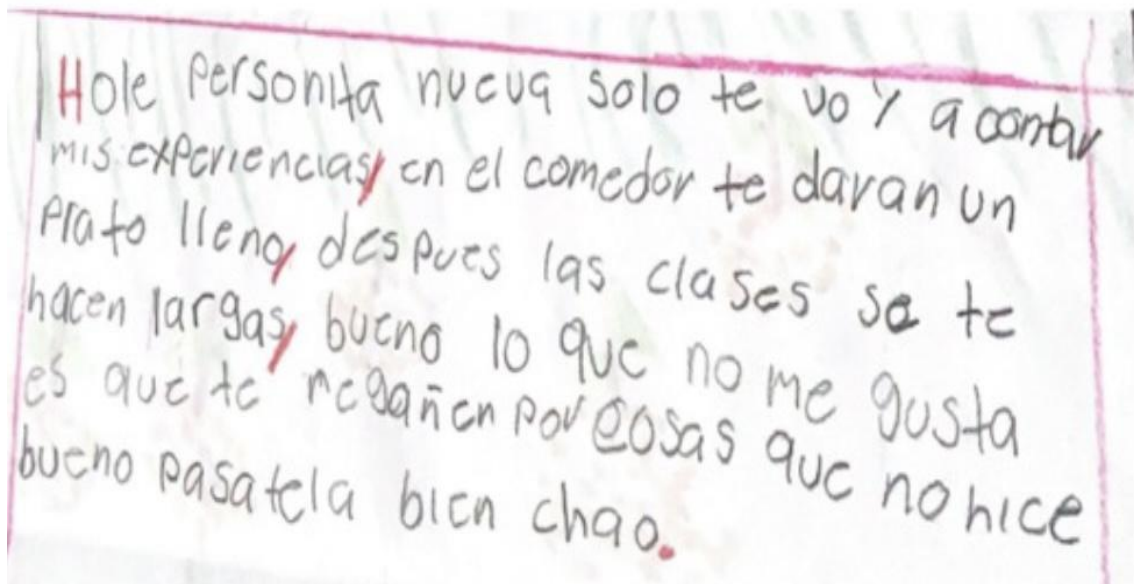 Hole personita nueva solo te voy a contar
mis experiencias, en el comedor te davan un
prato lleno, despues las clases se te
hacen largas, bueno lo que no me gusta
es que te regañen por cosas que no hice
bueno pasatela bien chao.